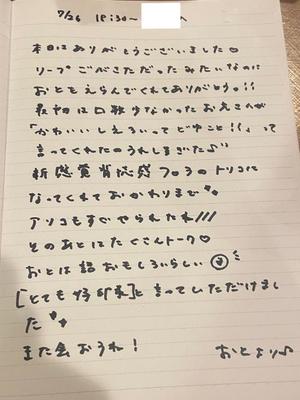 7/26 18:30〜 へ
本日はありがとうございました♡
リープごがきただったみたいなのに
おとをえらんでくれてありがとう。!!
最初は口数少なかったお兄さんが
「かわいいしえろいってどゆこと!!」って
言ってくれたのうれしすぎた♪"
新感覚背徳感フロ3のトリコに
なってくれておかわりまで
アソコもすぐやられたれ///
そのあとはたくさんトーク♡
おとは話おもしろいらしい
[とても好印象]と言っていただけまし
た
また会おうね! おとより♪